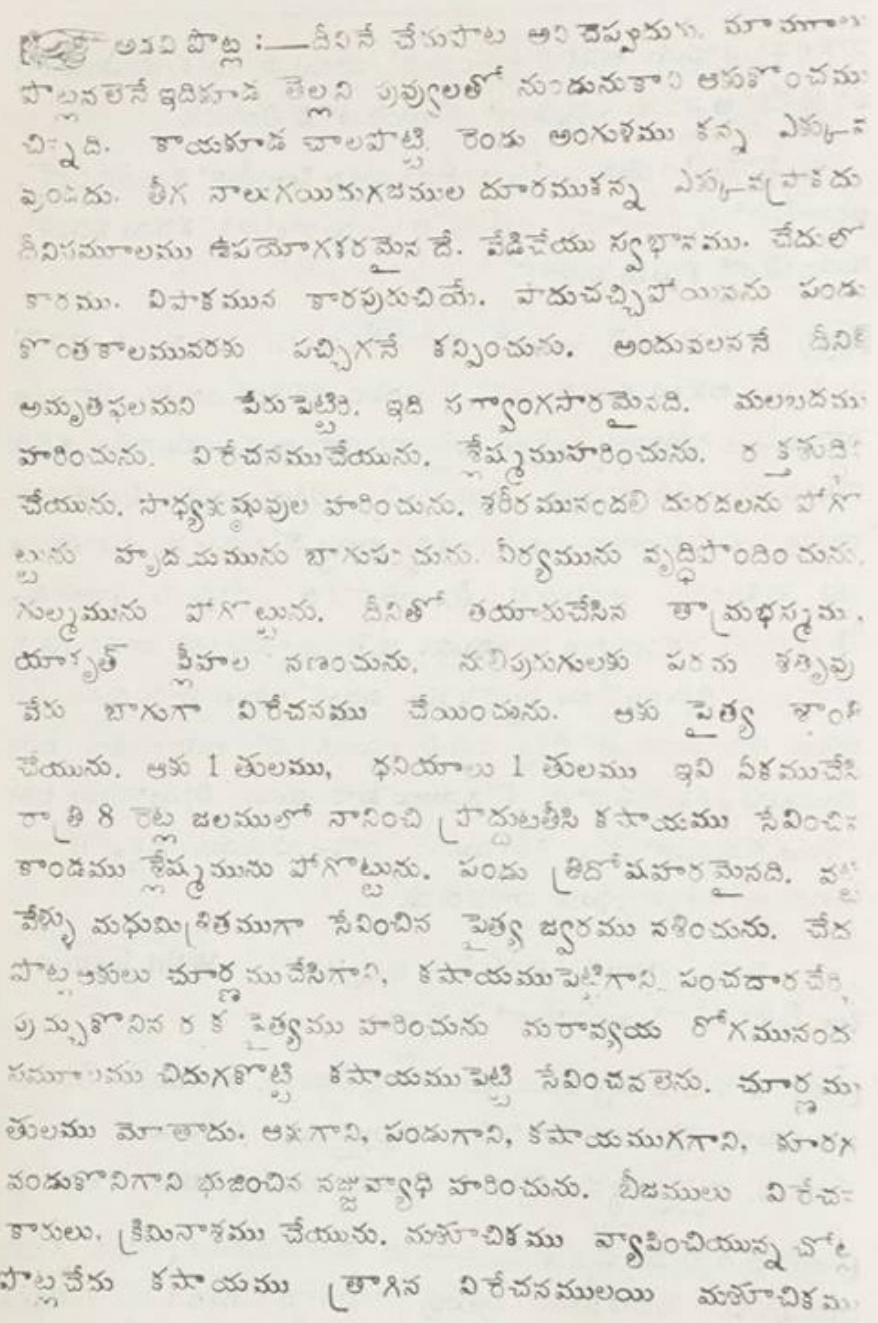 అడవి పొట్ల :—దీనినే చేదుపొట్ల అని చెప్పుదురు. మామూలు
పొట్లవలెనే ఇదికూడ తెల్లని పువ్వులతో నుండునుకాని ఆకుకొంచము
చిన్నది. కాయకూడ చాలపొట్టి రెండు అంగుళము కన్న ఎక్కువ
వుండదు. తీగ నాలుగయిదుగజముల దూరముకన్న ఎక్కువప్రాకదు
దీనిసమూలము ఉపయోగకరమైనదే. వేడిచేయు స్వభావము. చేదులో
కారము. విపాకమున కారపురుచియే. పాదుచచ్చిపోయినను పండు
కొంతకాలమువరకు పచ్చిగనే కన్పించును. అందువలననే దీనికి
అమృతఫలమని పేరుపెట్టిరి. ఇది సర్వాంగసారమైనది. మలబదము
హరించును. విరేచనముచేయును. శ్లేష్మముహరించును. రక్తశుద్ధి
చేయును. సాధ్యకుష్ఠువుల హరించును. శరీరమునందలి దురదలను పోగొ
ట్టును హృదయమును బాగుపరచును. వీర్యమును వృద్ధిపొందించును.
గుల్మమును పోగొట్టును. దీనితో తయారుచేసిన తామ్రభస్మము,
యాకృత్ ప్లీహల నణంచును. నులిపురుగులకు పరమ శత్రువు
వేరు బాగుగా విరేచనము చేయించును. ఆకు పైత్య శాంతి
చేయును. ఆకు 1 తులము, ధనియాలు 1 తులము ఇవి ఏకముచేసి
రాత్రి 8 రెట్ల జలములో నానించి ప్రొద్దుటతీసి కషాయము సేవించిన
కాండము శ్లేష్మమును పోగొట్టును. పండు త్రిదోషహరమైనది. వట్టి
వేళ్ళు మధుమిశ్రితముగా సేవించిన పైత్య జ్వరము నశించును. చేదు
పొట్ల ఆకులు చూర్ణముచేసిగాని, కషాయముపెట్టిగాని పంచదారచేర్చి
పుచ్చుకొనిన రక్త పైత్యము హరించును మదావ్యయ రోగమునంద
సమూలము చిదుగకొట్టి కషాయముపెట్టి సేవించవలెను. చూర్ణము
తులము మోతాదు. ఆకుగాని, పండుగాని, కషాయముగగాని, కూరగ
వండుకొనిగాని భుజించిన నజ్జువ్యాధి హరించును. బీజములు విరేచన
కారులు. క్రిమినాశము చేయును. మశూచికము వ్యాపించియున్న చోట్ల
పొట్లచేదు కషాయము త్రాగిన విరేచనములయి మశూచికము